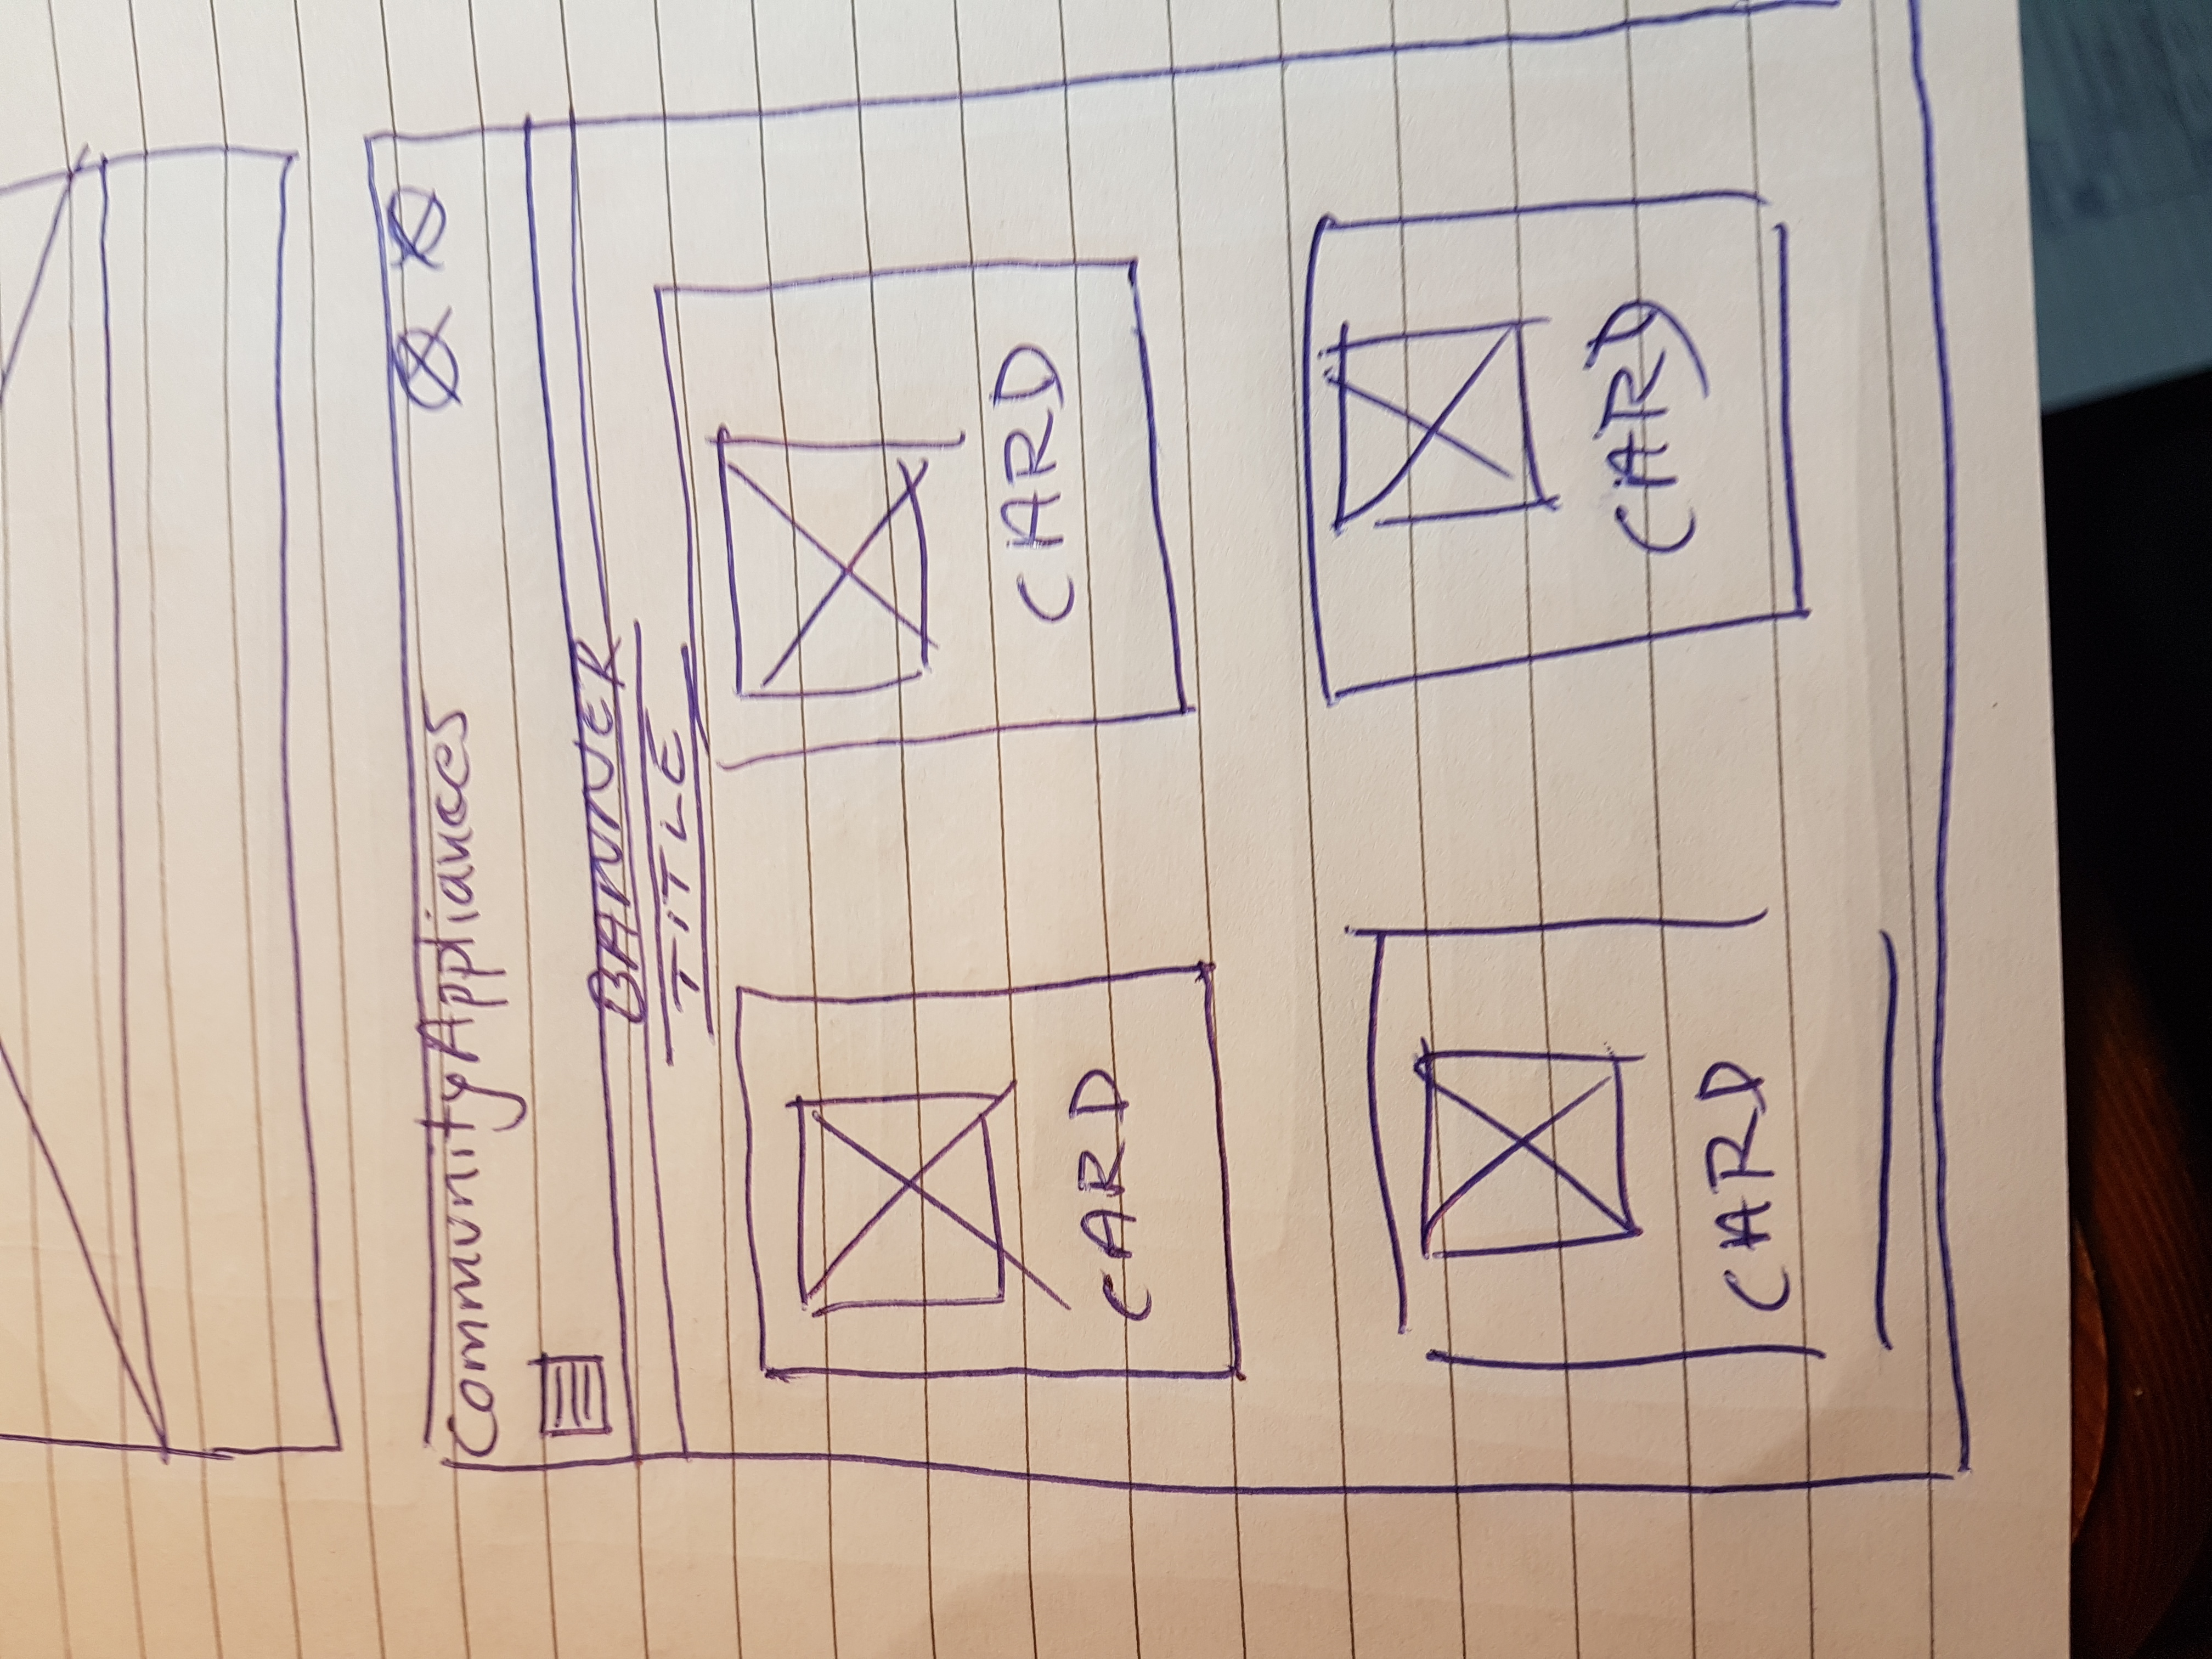 CommunityAppliances
BANNER
TITLE
CARD
CARD
CARD
CARD